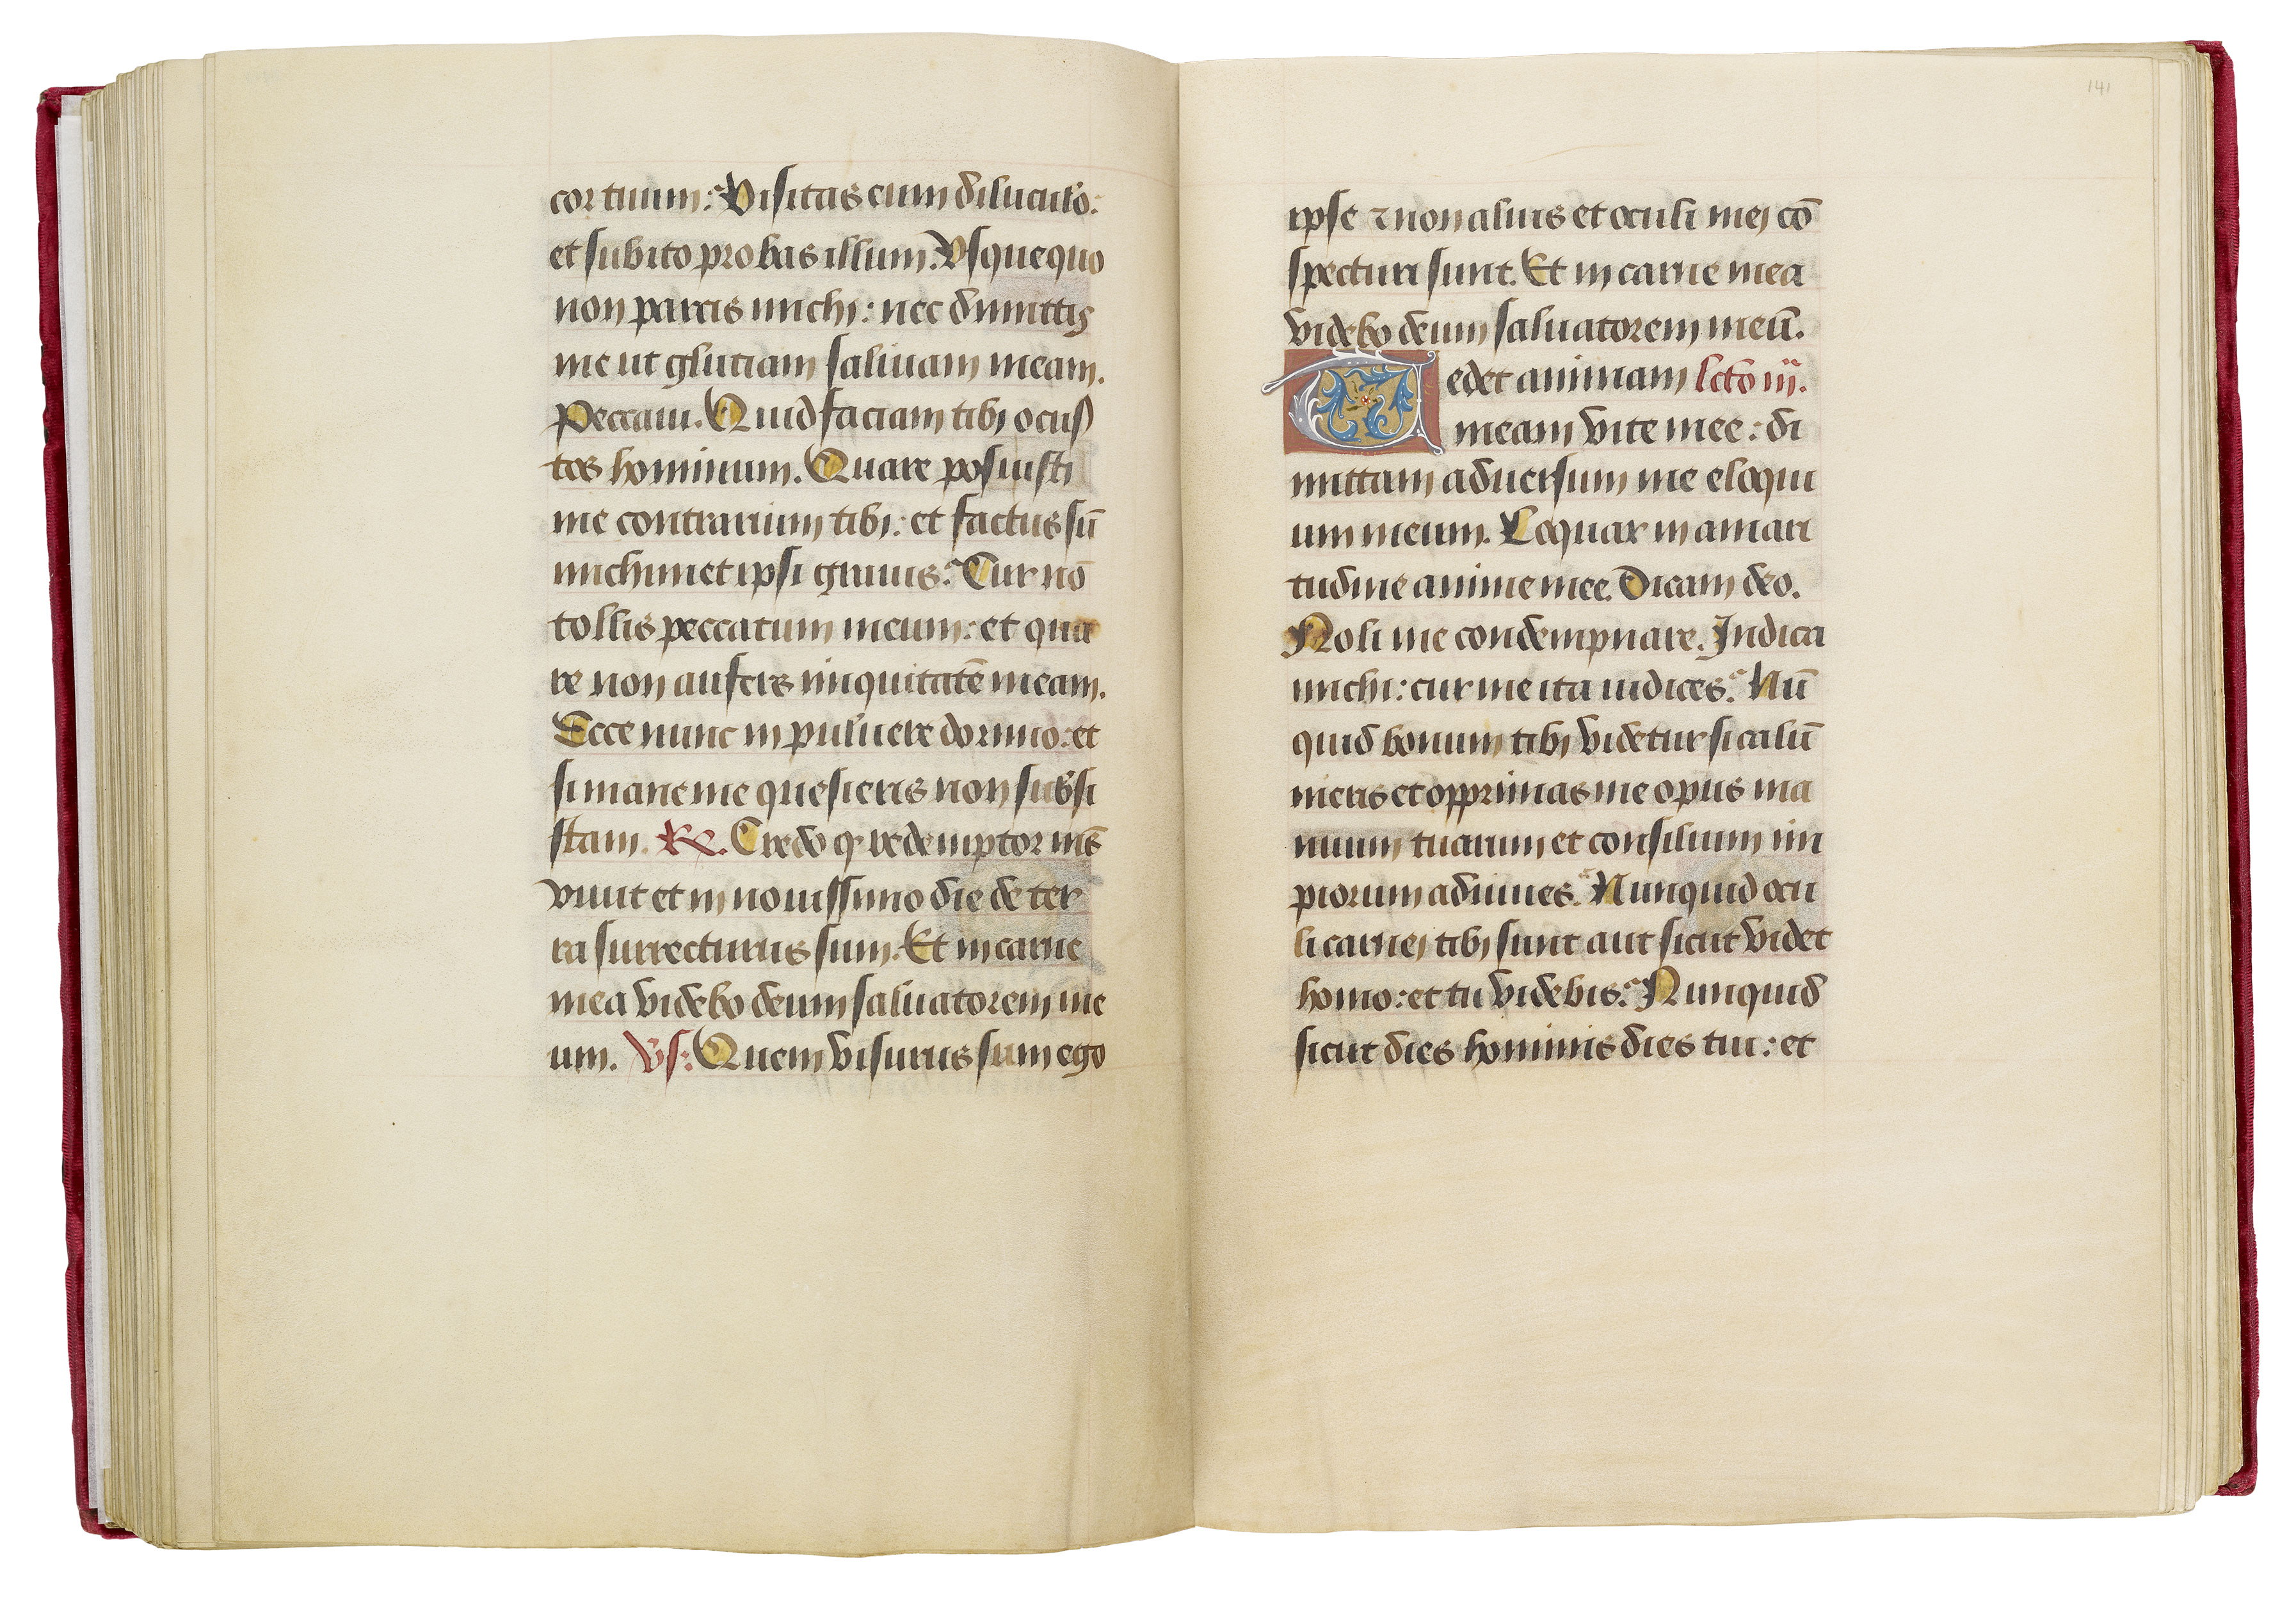 cor tuum: Visitas eum diluculo:
et subito probas illum. Vsquequo
non parcis michi: nec dimittis
me ut glutiam saliuam meam.
Peccaui. Quid faciam tibi o cus
tos hominum. Quare posuisti
me contrarium tibi: et factus sū
michimet ipsi grauis: Cur nō
tollis peccatum meum: et qua
re non aufers iniquitatē meam.
Ecce nunc in puluere dormio: et
si mane me quesieris non subsi
stam. ℟. Credo ꝙ redemptor me᷒
viuit et in nouissimo die de ter
ra surrecturus sum. Et in carne
mea videbo deum saluatorem me
um. Vs: Quem visurus sum ego
141
ipse ⁊ non alius et oculi mei cō
specturi sunt. Et in carne mea
videbo deum saluatorem meū.
Tedet animam lctō iij.
meam vite mee: di
mittam aduersum me eloqui
um meum. Loquar in amari
tudine anime mee. Dicam deo.
Noli me condempnare. Indica
michi: cur me ita iudices: Nū
quid bonum tibi videtur si calū
nieris et opprimas me opus ma
nuum tuarum et consilium im
piorum adiuues. Nunquid ocu
li carnei tibi sunt aut sicut videt
homo: et tu videbis: Nunquid
sicut dies hominis dies tui: et